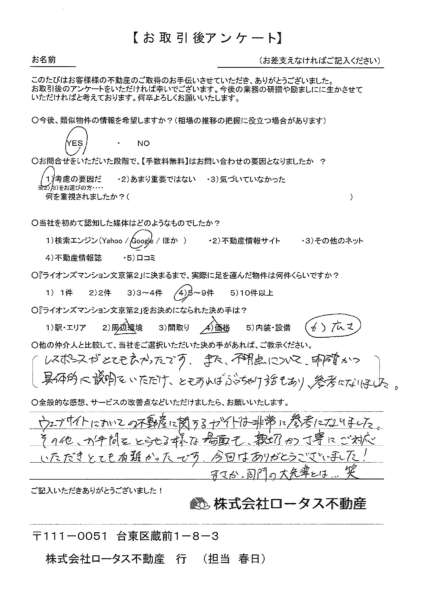 【お取引後アンケート】
お名前　　　　（お差支えなければご記入ください）
このたびはお客様様の不動産のご取得のお手伝いさせていただき、ありがとうございました。
お取引後のアンケートをいただければ幸いでございます。今後の業務の研鑽や励ましにに生かさせて
いただければと考えております。何卒よろしくお願いいたします。
○今後、類似物件の情報を希望しますか？（相場の推移の把握に役立つ場合があります）
YES　・　NO
○お問合せをいただいた段階で、【手数料無料】はお問い合わせの要因となりましたか　？
1)考慮の要因だ　・2)あまり重要ではない　・3)気づいていなかった
※2)3)をお選びの方・・・・
何を重視されましたか？（　　　　）
○当社を初めて認知した媒体はどのようなものでしたか？
1)検索エンジン（Yahoo / Google / ほか　）　・2)不動産情報サイト　・3)その他のネット
4)不動産情報誌　・5)口コミ
○『ライオンズマンション文京第2』に決まるまで、実際に足を運んだ物件は何件くらいですか？
1) 1件　2)2件　3)3～4件　4)5～9件　5)10件以上
○『ライオンズマンション文京第2』をお決めになられた決め手は？
1)駅・エリア　2)周辺環境　3)間取り　4)価格　5)内装・設備　6) 広さ
○他の仲介人と比較して、当社をご選択いただいた決め手があれば、ご教示ください。
レスポンスがとても良かったです。また、不明点について、明確かつ
具体的に説明をいただけ、ともすればぶっちゃけ話もあり、参考になりました。
○全般的な感想、サービスの改善点などいただけましたら、お願いいたします。
ウェブサイトにおいての不動産に関するガイドは非常に参考になりました。
その他、お手間をとらせる様な場面も、親切かつ丁寧にご対応
いただきとても有難かったです。今回はありがとうございました！
まさか、同門の大先輩とは… 笑
ご記入いただきありがとうございました！
株式会社ロータス不動産
〒111-0051　台東区蔵前1-8-3
株式会社ロータス不動産　行　（担当　春日）